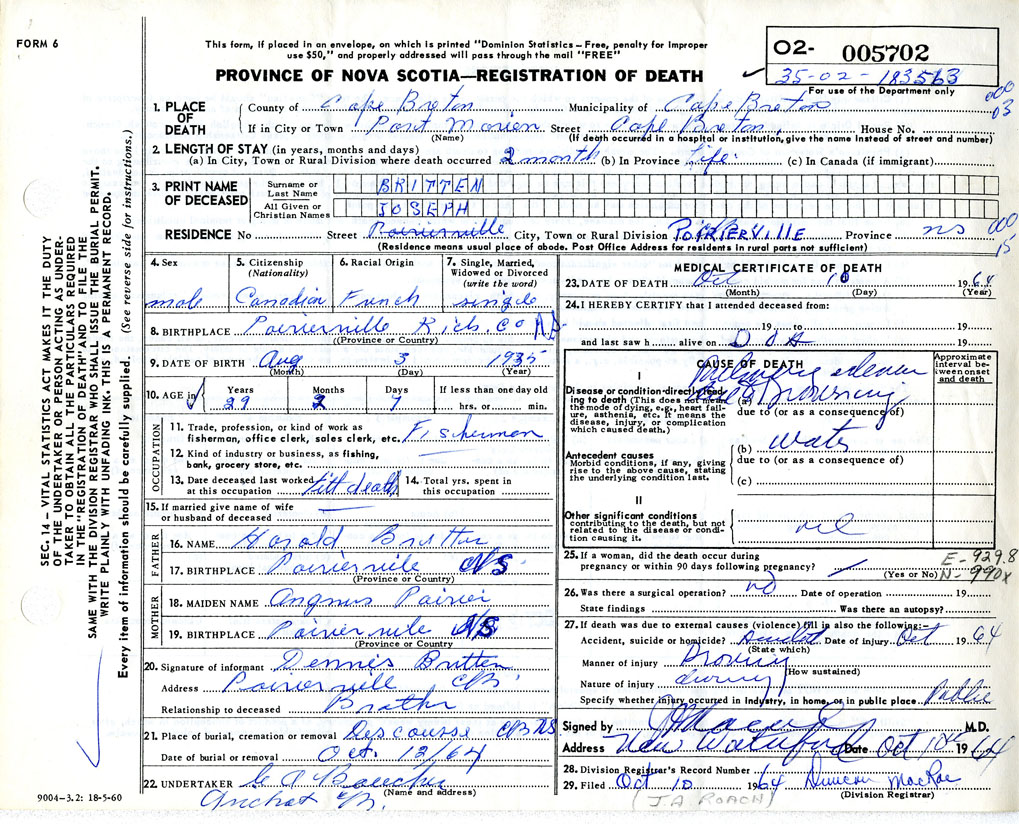 FORM 6
This form, if placed in an envelope, on which is printed "Dominion Statistics – Free, penalty for improper
use $50," and properly addressed will pass through the mail "FREE"
PROVINCE OF NOVA SCOTIA—REGISTRATION OF DEATH
02- 005702
35-02-183563
For use of the Department only
000
03
1. PLACE OF DEATH
County of Cape Breton Municipality of Cape Breton
If in City or Town Port Morien Street Cape Breton, House No.
(Name) (If death occurred in a hospital or institution, give the name instead of street and number)
2. LENGTH OF STAY (in years, months and days)
(a) In City, Town or Rural Division where death occurred 2 month (b) In Province Life (c) In Canada (if immigrant)
3. PRINT NAME OF DECEASED
Surname or Last Name BRITTEN
All Given or Christian Names JOSEPH
RESIDENCE No Street Poirierville City, Town or Rural Division POIRIERVILLE Province NS
000
15
(Residence means usual place of abode. Post Office Address for residents in rural parts not sufficient)
4. Sex
male
5. Citizenship
(Nationality)
Canadian
6. Racial Origin
French
7. Single, Married,
Widowed or Divorced
(write the word)
single
8. BIRTHPLACE Poirierville Rich. Co NS
(Province or Country)
9. DATE OF BIRTH Aug 3 1935
(Month) (Day) (Year)
10. AGE in
Years Months Days If less than one day old
29 2 7 hrs. or min.
OCCUPATION
11. Trade, profession, or kind of work as
fisherman, office clerk, sales clerk, etc. Fisherman
12. Kind of industry or business, as fishing,
bank, grocery store, etc.
13. Date deceased last worked
at this occupation till death
14. Total yrs. spent in
this occupation
15. If married give name of wife
or husband of deceased
FATHER
16. NAME Harold Britten
17. BIRTHPLACE Poirierville NS
(Province or Country)
MOTHER
18. MAIDEN NAME Poirier
19. BIRTHPLACE Poirierville NS
(Province or Country)
20. Signature of informant Dennis Britten
Address Poirierville CB.
Relationship to deceased Brother
21. Place of burial, cremation or removal Descousse CB NS
Date of burial or removal Oct. 12/64
22. UNDERTAKER
(Name and address)
9004-3.2: 18-5-60
MEDICAL CERTIFICATE OF DEATH
23. DATE OF DEATH Oct 10 1964
(Month) (Day) (Year)
24. I HEREBY CERTIFY that I attended deceased from:
19 to 19
and last saw h alive on D O A 19
CAUSE OF DEATH
Approximate
interval between
onset
and death
I
Disease or condition directly leading
to death (This does not mean
the mode of dying, e.g., heart failure,
asthenia, etc. It means the
disease, injury, or complication
which caused death.)
(a) Pulmonary edema
due to Drowning
due to (or as a consequence of)
(b) Water
Antecedent causes
Morbid conditions, if any, giving
rise to the above cause, stating
the underlying condition last.
due to (or as a consequence of)
(c)
II
Other significant conditions
contributing to the death, but not
related to the disease or condition
causing it.
nil
25. If a woman, did the death occur during
pregnancy or within 90 days following pregnancy?
(Yes or No)
E-929.8
N-990X
26. Was there a surgical operation? no Date of operation 19
State findings Was there an autopsy?
27. If death was due to external causes (violence) fill in also the following:–
Accident, suicide or homicide? Accident Date of injury Oct 1964
(State which)
Manner of injury Drowning
(How sustained)
Nature of injury
Specify whether injury occurred in industry, in home, or in public place Public
Signed by M.D.
Address New Waterford Date Oct 10th 1964
28. Division Registrar's Record Number
29. Filed Oct 10 1964 Duncan MacRae
(Division Registrar)
(J.A ROACH)
SEC. 14 – VITAL STATISTICS ACT MAKES IT THE DUTY
OF THE UNDERTAKER OR PERSON ACTING AS UNDERTAKER
TO OBTAIN ALL THE PARTICULARS REQUIRED
IN THE "REGISTRATION OF DEATH" AND TO FILE THE
SAME WITH THE DIVISION REGISTRAR WHO SHALL ISSUE THE BURIAL PERMIT.
WRITE PLAINLY WITH UNFADING INK. THIS IS A PERMANENT RECORD.
Every item of information should be carefully supplied. (See reverse side for instructions.)